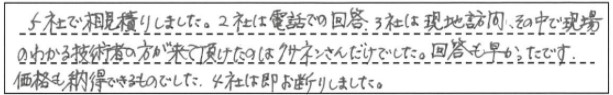 5社で相見積りしました。2社は電話での回答、3社は現地訪問、その中で現場
のわかる技術者の方が来て頂けたのはクサネンさんだけでした。回答も早かったです。
価格も納得できるものでした。4社は即お断りしました。